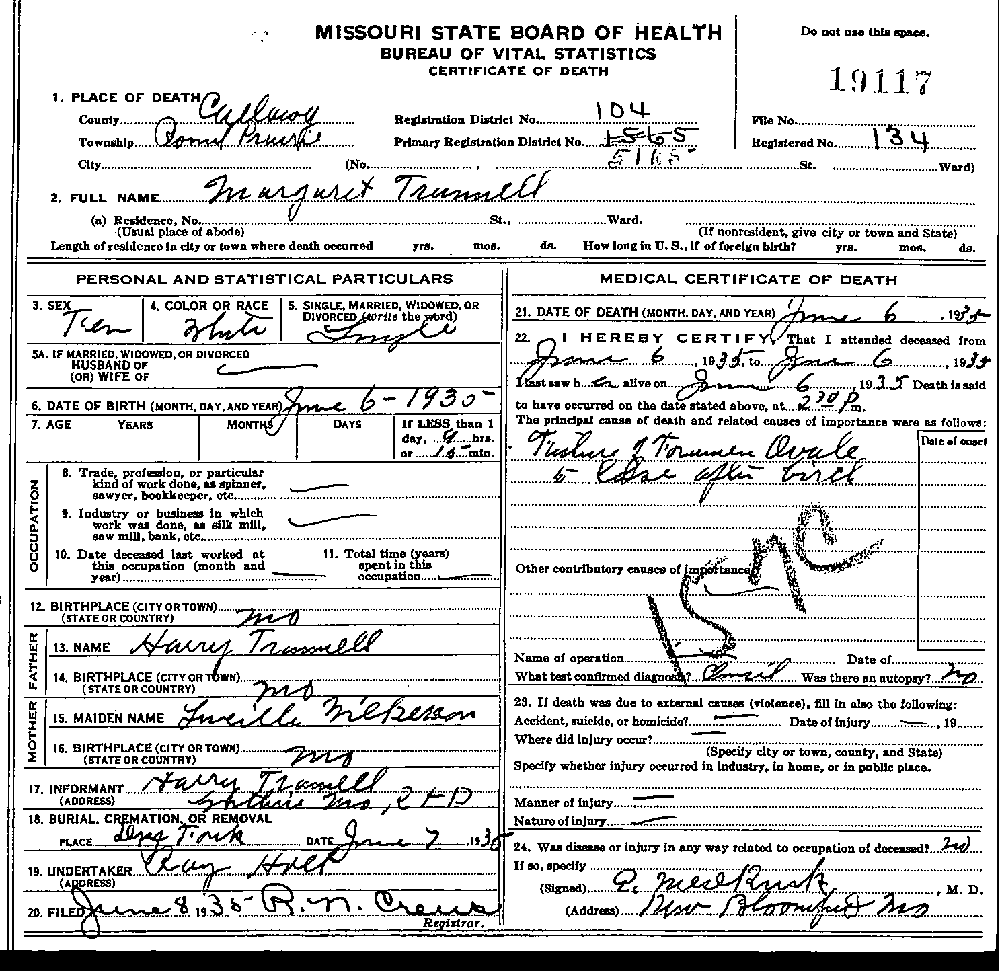 MISSOURI STATE BOARD OF HEALTH
BUREAU OF VITAL STATISTICS
CERTIFICATE OF DEATH
Do not use this space.
19117
1. PLACE OF DEATH
County Callaway
Registration District No. 104
File No.
Township
Primary Registration District No. 1565
5165
Registered No. 134
City (No. , St. Ward)
2. FULL NAME Margaret Trammell
(a) Residence, No. St., Ward.
(Usual place of abode) (If nonresident, give city or town and State)
Length of residence in city or town where death occurred yrs. mos. ds. How long in U. S., if of foreign birth? yrs. mos. ds.
PERSONAL AND STATISTICAL PARTICULARS
3. SEX Fem
4. COLOR OR RACE White
5. SINGLE, MARRIED, WIDOWED, OR DIVORCED (write the word) Single
5A. IF MARRIED, WIDOWED, OR DIVORCED
HUSBAND OF
(OR) WIFE OF
6. DATE OF BIRTH (MONTH, DAY, AND YEAR) June 6 - 1935
7. AGE YEARS MONTHS DAYS If LESS than 1
day, 9 hrs.
or 15 min.
OCCUPATION
8. Trade, profession, or particular
kind of work done, as spinner,
sawyer, bookkeeper, etc.
9. Industry or business in which
work was done, as silk mill,
saw mill, bank, etc.
10. Date deceased last worked at
this occupation (month and
year)
11. Total time (years)
spent in this
occupation
12. BIRTHPLACE (CITY OR TOWN)
(STATE OR COUNTRY) Mo
FATHER
13. NAME Harry Trammell
14. BIRTHPLACE (CITY OR TOWN)
(STATE OR COUNTRY) Mo
MOTHER
15. MAIDEN NAME Lucille Wilkerson
16. BIRTHPLACE (CITY OR TOWN)
(STATE OR COUNTRY) Mo
17. INFORMANT Harry Tramell
(ADDRESS) Guthrie Mo, RFD
18. BURIAL, CREMATION, OR REMOVAL
PLACE Dry Fork DATE June 7, 1935
19. UNDERTAKER Ray Holt
(ADDRESS)
20. FILED June 8 1935 R. N. Crews
Registrar.
MEDICAL CERTIFICATE OF DEATH
21. DATE OF DEATH (MONTH, DAY, AND YEAR) June 6, 1935
22. I HEREBY CERTIFY, That I attended deceased from
June 6, 1935, to June 6, 1935
I last saw her alive on June 6, 1935 Death is said
to have occurred on the date stated above, at 2 30 P m.
The principal cause of death and related causes of importance were as follows:
Date of onset
Failure of Foramen Ovale
to close after birth
Other contributory causes of importance:
Name of operation Date of
What test confirmed diagnosis? Clinical Was there an autopsy? No
23. If death was due to external causes (violence), fill in also the following:
Accident, suicide, or homicide? Date of injury , 19
Where did injury occur?
(Specify city or town, county, and State)
Specify whether injury occurred in industry, in home, or in public place.
Manner of injury
Nature of injury
24. Was disease or injury in any way related to occupation of deceased? No
If so, specify
(Signed) , M. D.
(Address) New Bloomfield Mo